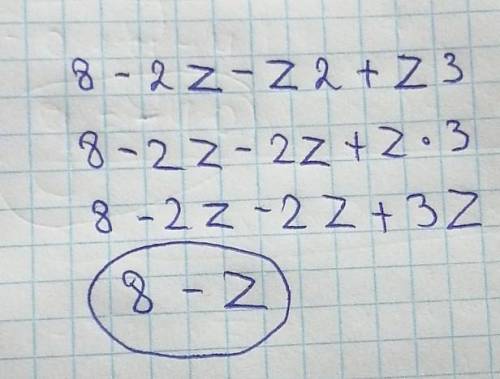 8 - 2z - z2 + z3
8 - 2z - 2z + z · 3
8 - 2z - 2z + 3z
8 - z